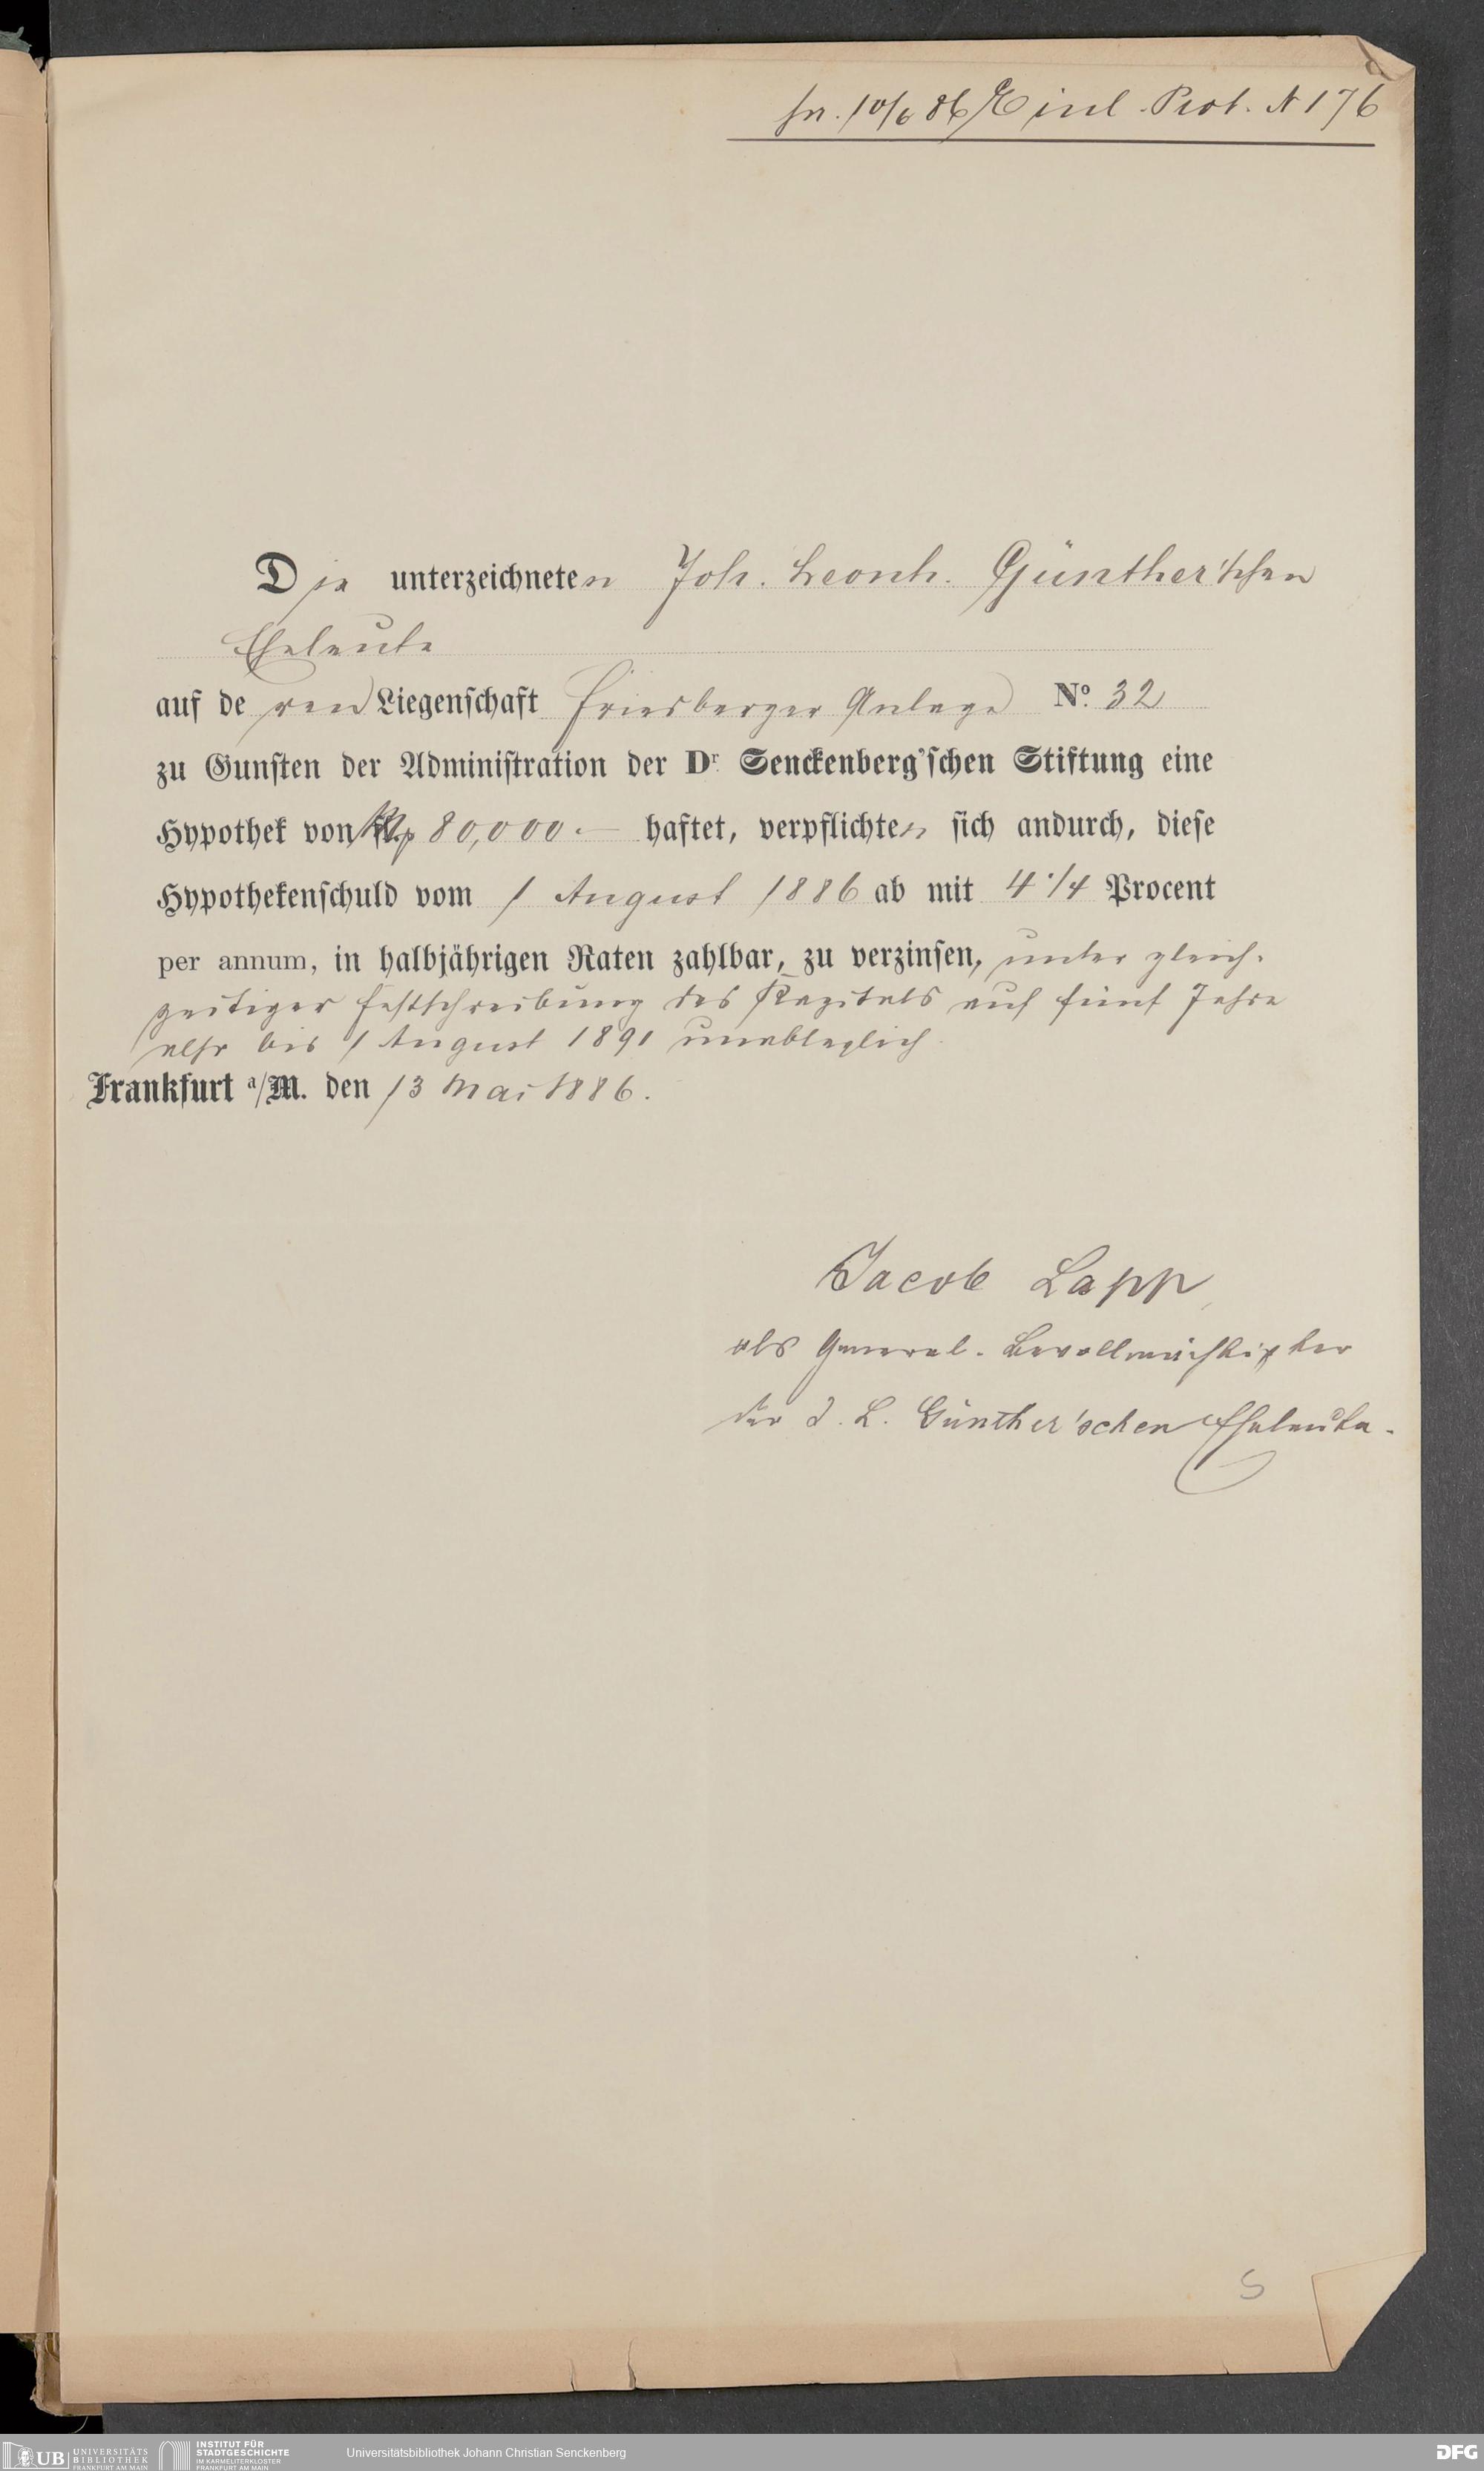 pr. 10/6 86 Einl. Prot. N 176
Die unterzeichneten Joh. Leonh. Günther'schen
Eheleute
auf deren Liegenschaft Friedberger Anlage No. 32
zu Gunſten der Adminiſtration der Dr. Senckenberg'ſchen Stiftung eine
Hypothek von 80,000.— haftet, verpflichten ſich andurch, dieſe
Hypothekenſchuld vom 1 August 1886 ab mit 4 1/4 Procent
per annum, in halbjährigen Raten zahlbar, zu verzinſen, unter gleich-
zeitiger Festschreibung des Kapitals auf fünf Jahre
also bis 1 August 1891 unableglich.
Frankfurt a/M. den 13 Mai 1886.
Jacob Lapp
als General-Bevollmächtigter
der J. L. Günther'schen Eheleute.
5
UB UNIVERSITÄTS BIBLIOTHEK FRANKFURT AM MAIN
INSTITUT FÜR STADTGESCHICHTE IM KARMELITERKLOSTER FRANKFURT AM MAIN
Universitätsbibliothek Johann Christian Senckenberg
DFG